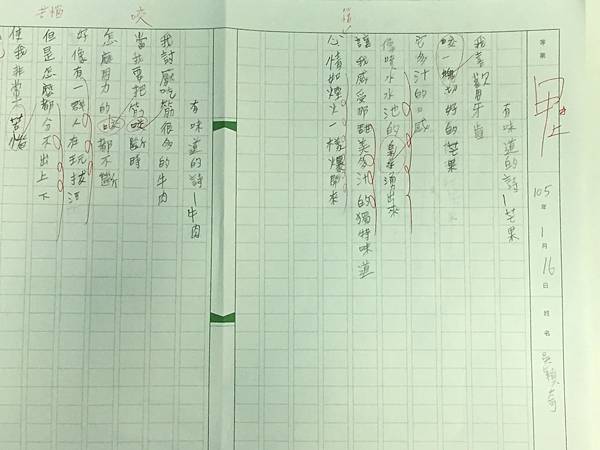 等第
甲上
105年1月16日
姓名
有味道的詩—芒果
我喜歡牙齒
咬一塊切好的芒果
它多汁的口感
像噴水水池的泉水湧出來
讓我感受那甜美多汁的獨特味道
心情如煙火一樣爆開來
有味道的詩—牛肉
我討厭吃筋很多的牛肉
當我要把筋咬斷時
咬
怎麼用力的咬都不斷
好像有一群人在玩拔河
但是怎麼都分不出上下
苦惱
使我非常苦惱